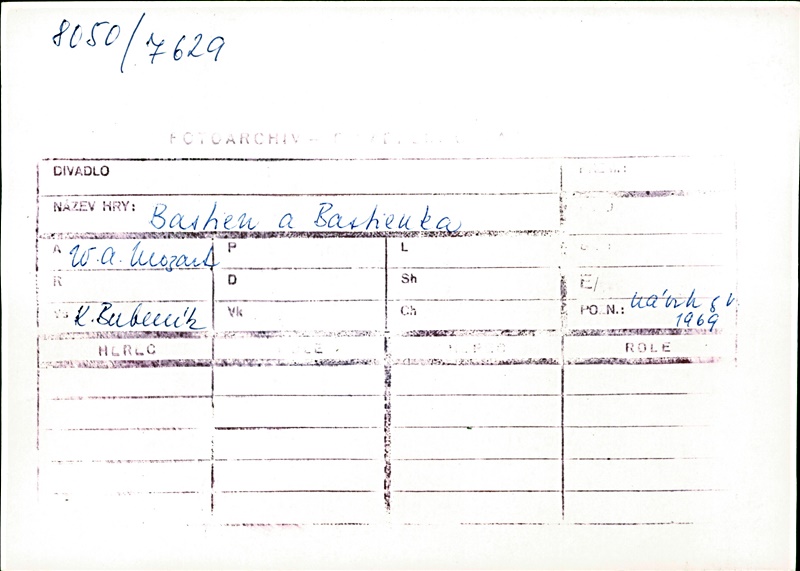 8050/7629
FOTOARCHIV
DIVADLO
NÁZEV HRY: Bastien a Bastienka
A W. A. Mozart P L
R D Sh
K. Bubeník Vk Ch PO N.: návrh
1969
HEREC ROLE